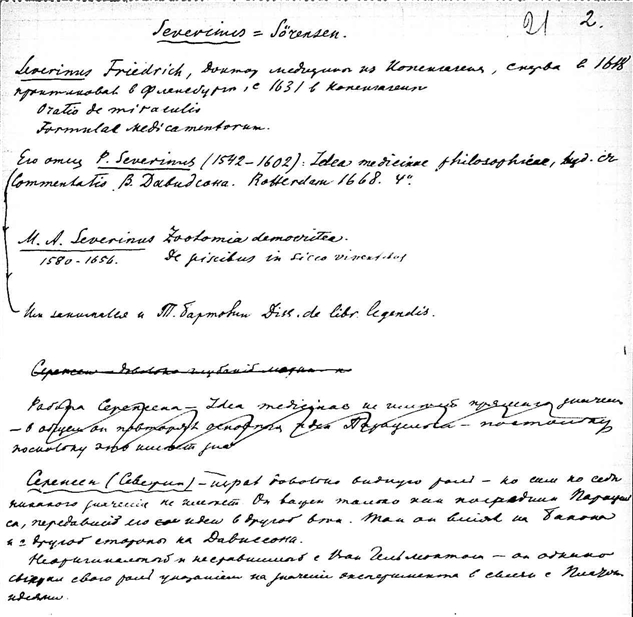 21 2.
Severinus = Sörensen.
Severinus Friedrich, Доктор медицины из Копенгагена, сперва в 1618
практиковал в Фленсбурге, с 1631 в Копенгагене
Oratio de miraculis
Formulae medicamentorum.
Его отец P. Severinus (1542–1602): Idea medicinae philosophicae,
Commentatio В. Давидсона. Rotterdam 1668. 4º.
M. A. Severinus Zootomia democritea.
1580–1656. De piscibus in sicco viventibus
Им занимался и Т. Бартолин Diss. de libr. legendis.
Серенсен довольно
Работа Серенсена – Idea medicinae не имеет прямого значения
– в общем он повторяет основные идеи Парацельса – постольку
поскольку это имеет
Серенсен (Северин) – играет довольно видную роль – но сам по себе
никакого значения не имеет Он важен только как посредник Парацель
са, передавший его идеи в другой век. Так он влиял на Бакона
и с другой стороны на Дависсона.
Неоригинальный и несравнимый с Ван Гельмонтом – он однако
сыграл свою роль указанием на значение эксперимента в связи с
идеями.